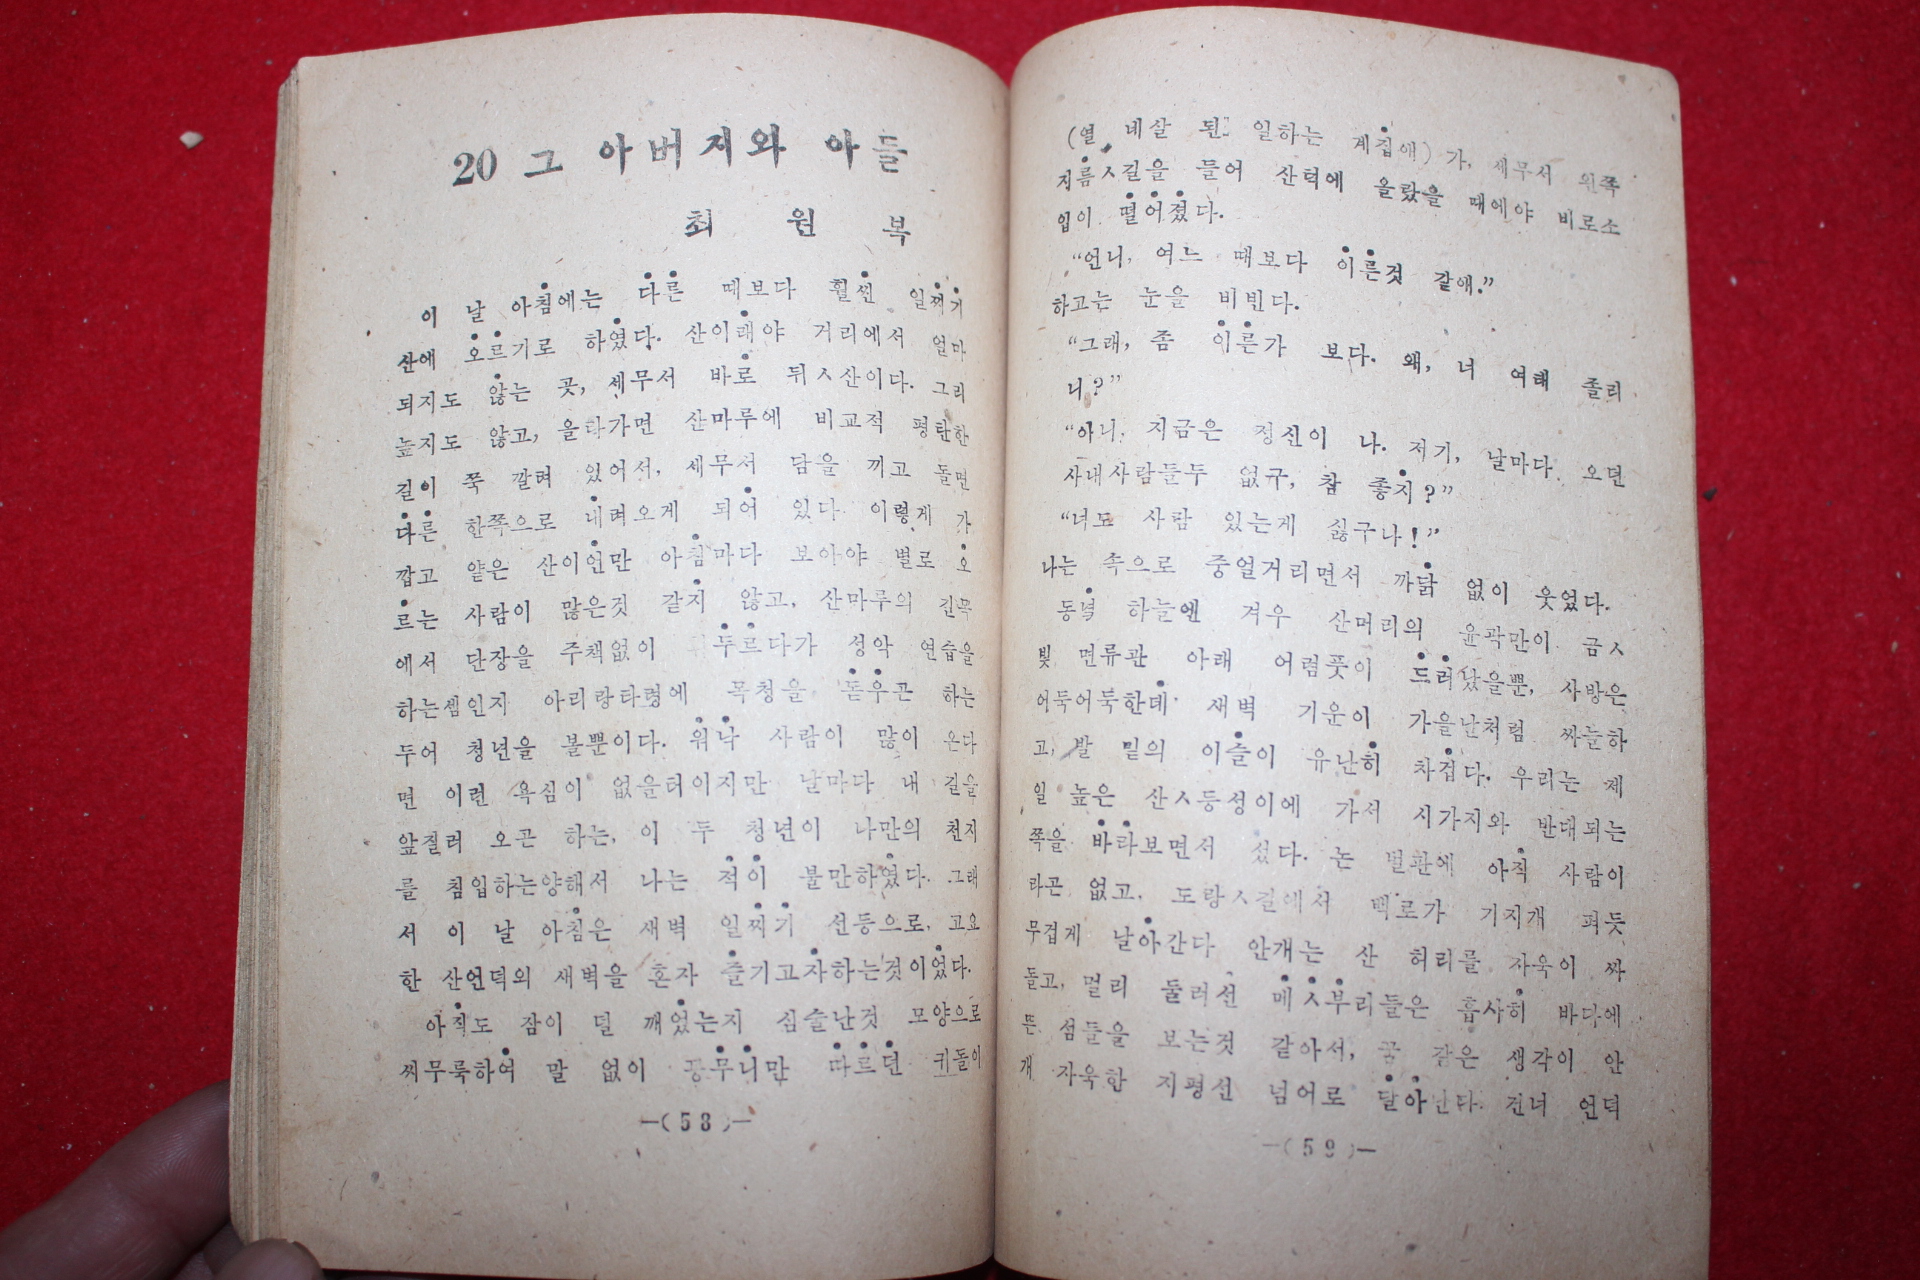 20 그 아버지와 아들
최 원 복
이 날 아침에는 다른 때보다 훨씬 일찌기
산에 오르기로 하였다. 산이래야 거리에서 얼마
되지도 않는 곳, 세무서 바로 뒤ㅅ산이다. 그리
높지도 않고, 올라가면 산마루에 비교적 평탄한
길이 쭉 깔려 있어서, 세무서 담을 끼고 돌면
다른 한쪽으로 내려오게 되어 있다. 이렇게 가
깝고 얕은 산이언만 아침마다 보아야 별로 오
르는 사람이 많은것 같지 않고, 산마루의 긴목
에서 단장을 주책없이 두르다가 성악 연습을
하는셈인지 아리랑타령에 목청을 돋우곤 하는
두어 청년을 볼뿐이다. 워낙 사람이 많이 온다
면 이런 욕심이 없을터이지만 날마다 내 길을
앞질러 오곤 하는, 이 두 청년이 나만의 천지
를 침입하는양해서 나는 적이 불만하였다. 그래
서 이 날 아침은 새벽 일찌기 선등으로, 고요
한 산언덕의 새벽을 혼자 즐기고자하는것이었다.
아직도 잠이 덜 깨었는지 심술난것 모양으로
찌무룩하여 말 없이 꽁무니만 따르던 귀돌이
—(58)—
(열 네살 된 일하는 계집애)가, 세무서 왼쪽
지름ㅅ길을 들어 산턱에 올랐을 때에야 비로소
입이 떨어졌다.
“언니, 여느 때보다 이른것 같애.”
하고는 눈을 비빈다.
“그래, 좀 이른가 보다. 왜, 너 여태 졸리
니?”
“아니, 지금은 정신이 나. 저기, 날마다 오던
사내사람들두 없구, 참 좋지?”
“너도 사람 있는게 싫구나!”
나는 속으로 중얼거리면서 까닭 없이 웃었다.
동녘 하늘엔 겨우 산머리의 윤곽만이 금ㅅ
빛 면류관 아래 어렴풋이 드러났을뿐, 사방은
어둑어둑한데 새벽 기운이 가을날처럼 싸늘하
고, 발 밑의 이슬이 유난히 차겁다. 우리는 제
일 높은 산ㅅ등성이에 가서 시가지와 반대되는
쪽을 바라보면서 섰다. 논 벌판에 아직 사람이
라곤 없고, 도랑ㅅ길에서 백로가 기지개 펴듯
무겁게 날아간다. 안개는 산 허리를 자욱이 싸
돌고, 멀리 둘러선 메ㅅ부리들은 흡사히 바다에
뜬 섬들을 보는것 같아서, 꿈 같은 생각이 안
개 자욱한 지평선 넘어로 달아난다. 건너 언덕
—(59)—